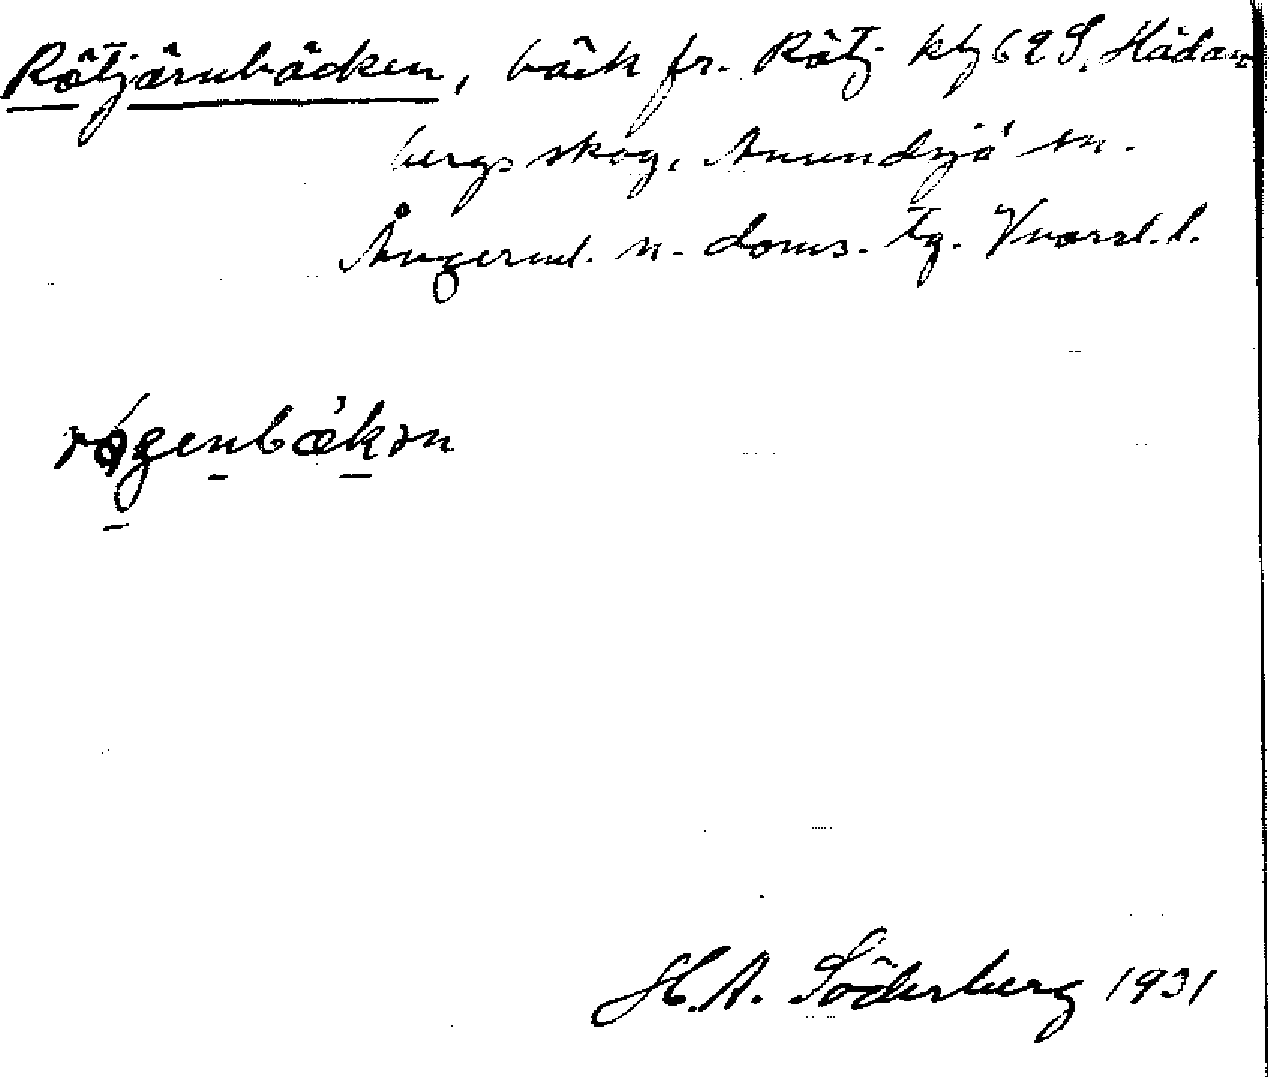 Rötjärnbäcken, bäck fr. Rötj. kbj 62 S. Hädan
bergs skog, Anundsjö sn.
Ångerml. n. doms. tg.
H. A. Söderberg 1931